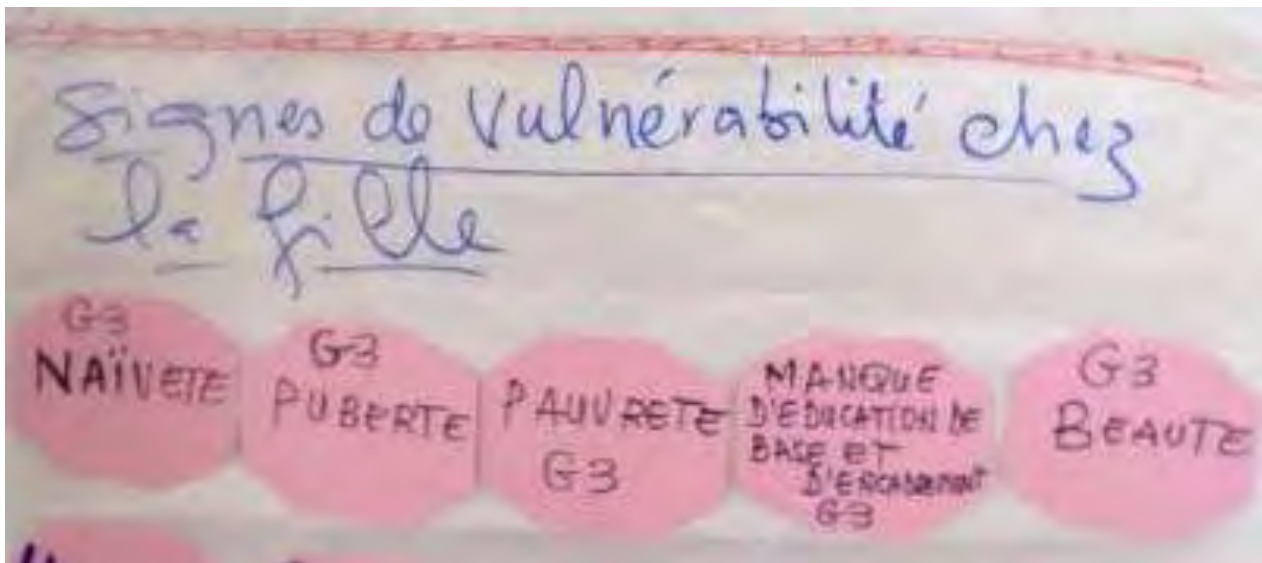 Signes de vulnérabilité chez
la fille
G3
NAÏVETE
G3
PUBERTE
PAUVRETE
G3
MANQUE
D'EDUCATION DE
BASE ET
D'ENCADREMENT
G3
G3
BEAUTE